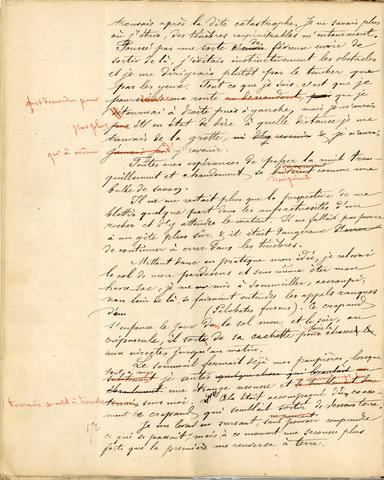 trouvais après la dite catastrophe. Je ne savais plus
où j'étais, des ténèbres impénétrables m'entouraient.
Poussé par une sorte de fiévreuse envie de
sortir de là, j'évitais instinctivement les obstacles
et je me dirigeais plutôt par le toucher que
par les yeux. Tout ce que je sais, c'est que je
poursuivis ma route en descendant, que je
tournai à droite puis à gauche, mais je n'aurais
pas plus été à même de dire à quelle distance je me
trouvais de la grotte, ni
qu'à même y revenir.
Toutes mes espérances de passer la nuit tran-
quillement et chaudement, se comme une
bulle de savon.
Il ne me restait plus que la perspective de me
blottir quelque part dans les anfractuosités d'un
rocher et d'y attendre le matin. Il ne fallait pas penser
à un gîte plus sûr & il était dangereux
de continuer à errer dans les ténèbres.
Mettant donc en pratique mon idée, je relevai
le col de mon pardessus et sans même ôter mon
havre-sac, je me mis à sommeiller, accroupi,
non loin de là se faisaient entendre les appels rauques
d'un (Pelobates fuscus). Le crapaud
s'enfonce le jour dans le sol mou et le soir, au
crépuscule, il sort de sa cachette pour faire la chasse
aux insectes jusqu'au matin.
Le sommeil fermait déjà mes paupières, lorsque
tout à coup je sentis
une étrange secousse et
sous moi. Cela était accompagné d'un
ment de crapaud, qui semblait sortir de dessous terre.
Je me levai en sursaut, sans pouvoir comprendre
ce qui se passait, mais à ce moment une secousse plus
forte que la première me renversa à terre.
172